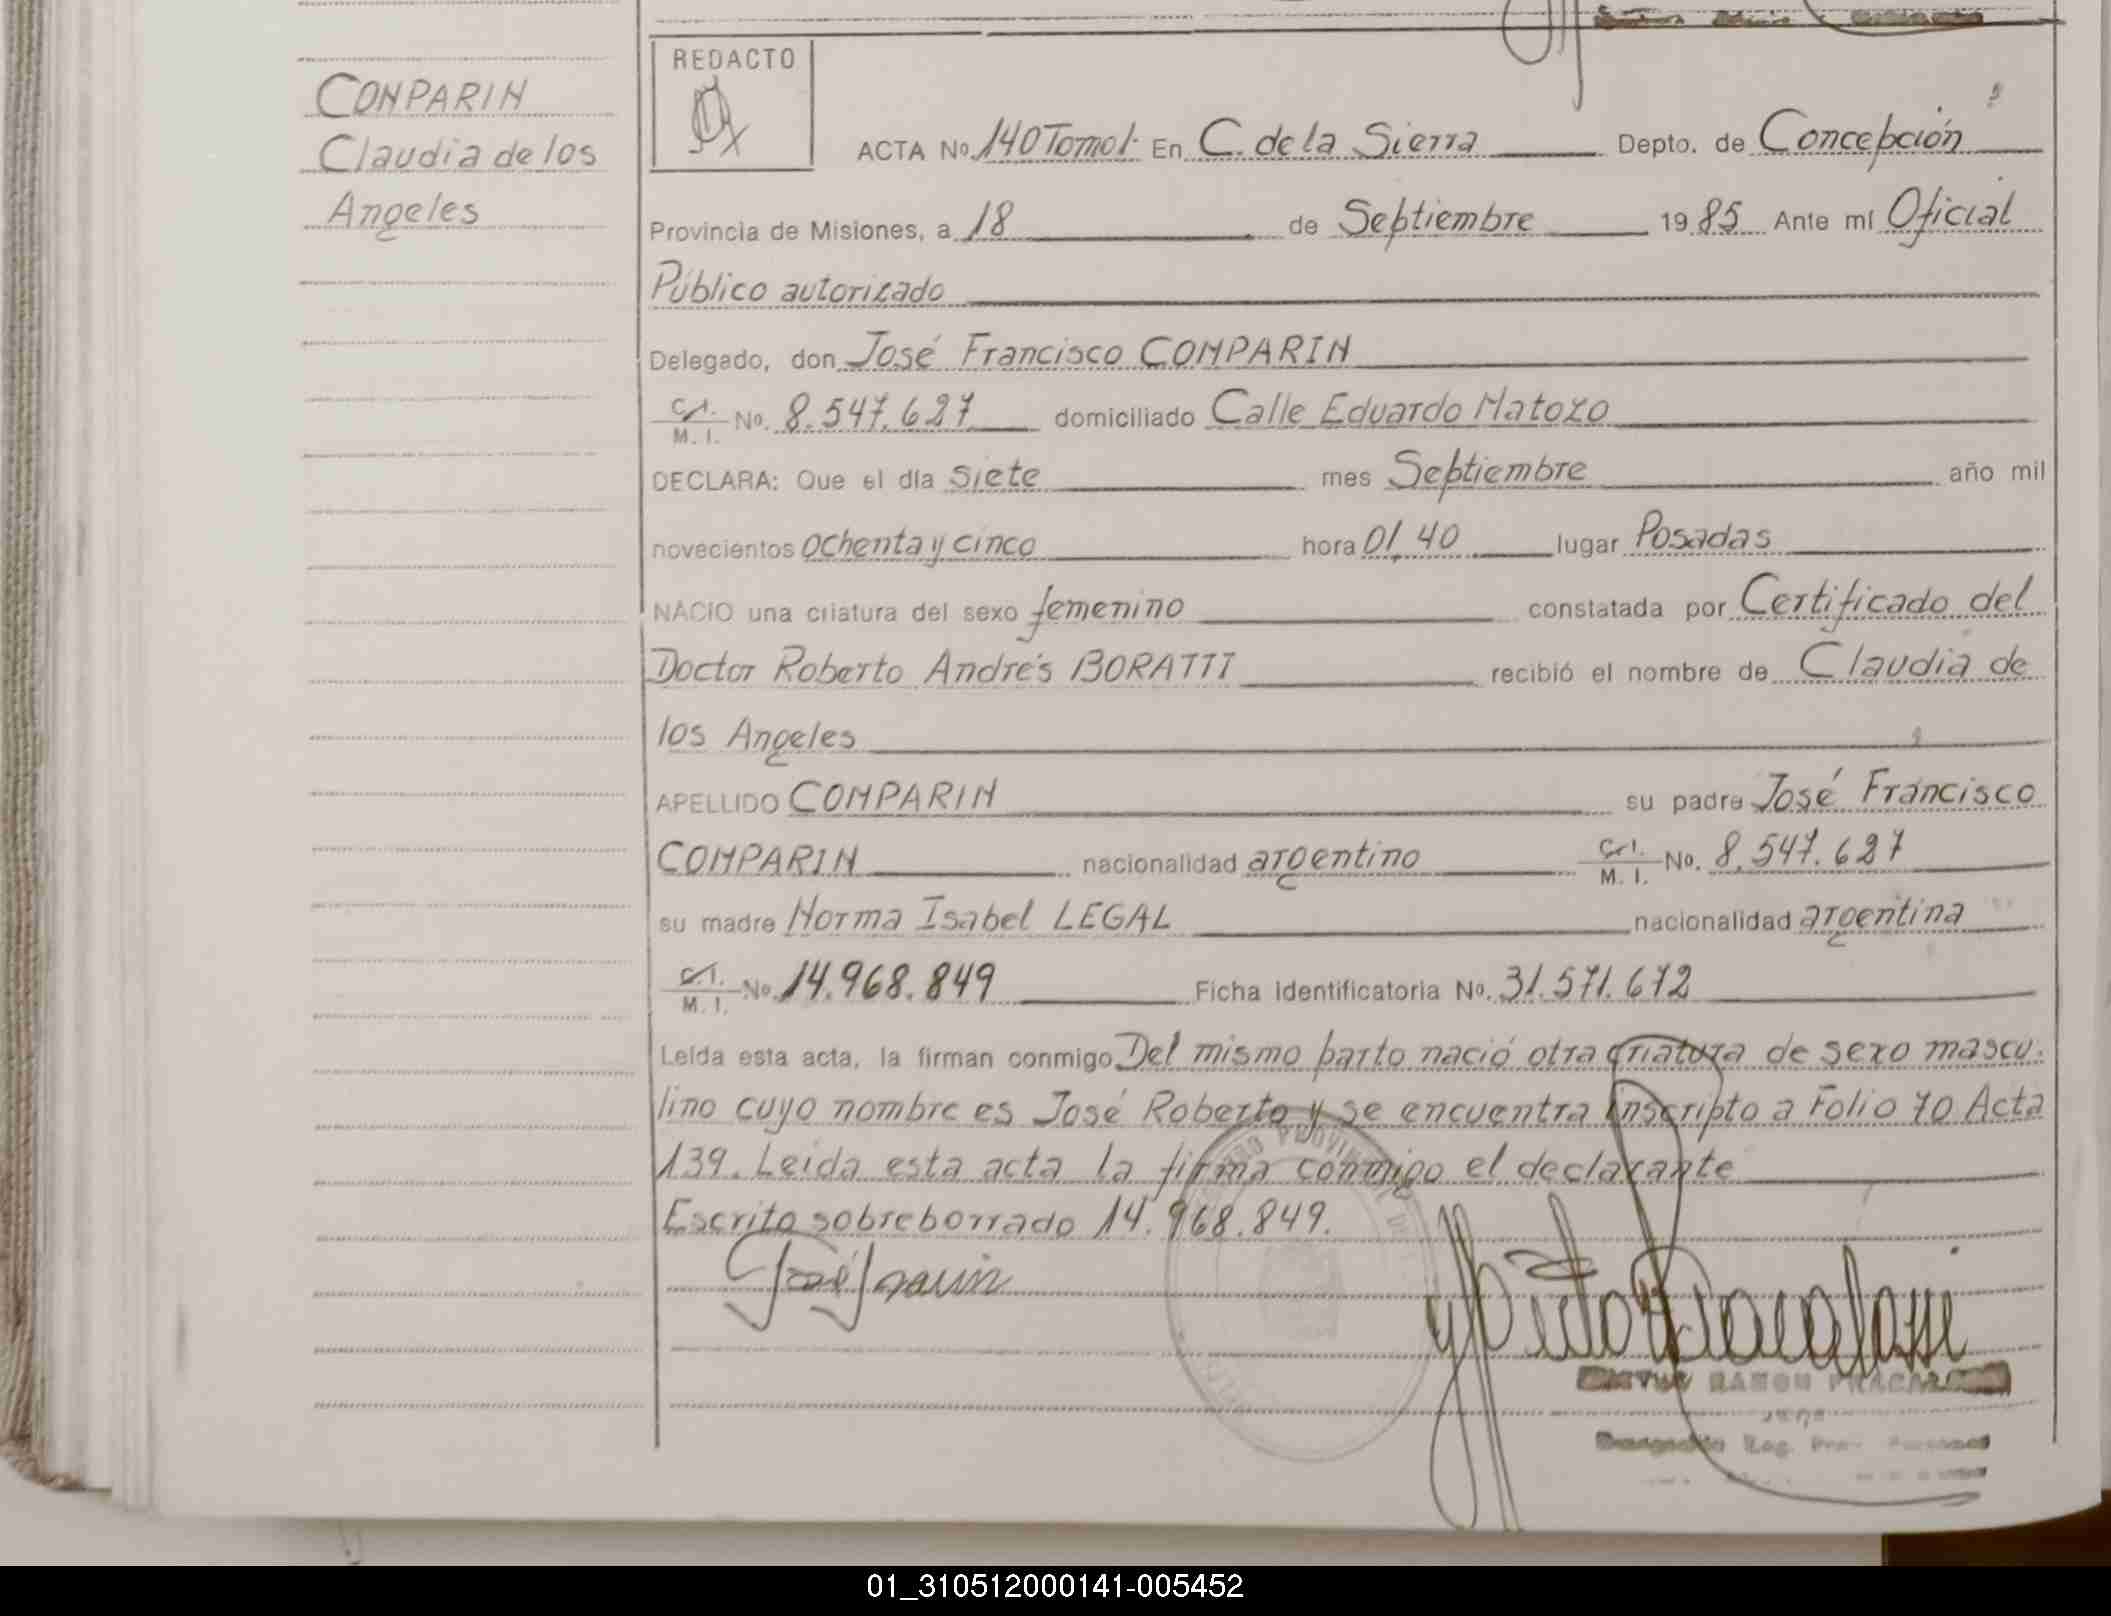 COMPARIN
Claudia de los
Angeles
REDACTO
ACTA Nº 140 Tomo I. En C. de la Sierra Depto. de Concepción
Provincia de Misiones, a 18 de Septiembre 1985 Ante mí Oficial
Público autorizado
Delegado, don José Francisco COMPARIN
C.I. M.I. No. 8.547.627 domiciliado Calle Eduardo Matozo
DECLARA: Que el día siete mes Septiembre año mil
novecientos ochenta y cinco hora 01,40 lugar Posadas
NACIO una criatura del sexo femenino constatada por Certificado del
Doctor Roberto Andrés BORATTI recibió el nombre de Claudia de
los Angeles
APELLIDO COMPARIN su padre José Francisco
COMPARIN nacionalidad argentino C.I. M.I. No. 8.547.627
su madre Norma Isabel LEGAL nacionalidad argentina
C.I. M.I. No. 14.968.849 Ficha Identificatoria No. 31.571.672
Leída esta acta, la firman conmigo Del mismo parto nació otra criatura de sexo mascu-
lino cuyo nombre es José Roberto y se encuentra inscripto a Folio 70 Acta
139. Leida esta acta la firma conmigo el declarante
Escrito sobreborrado 14.968.849.
RAMON
01_310512000141-005452